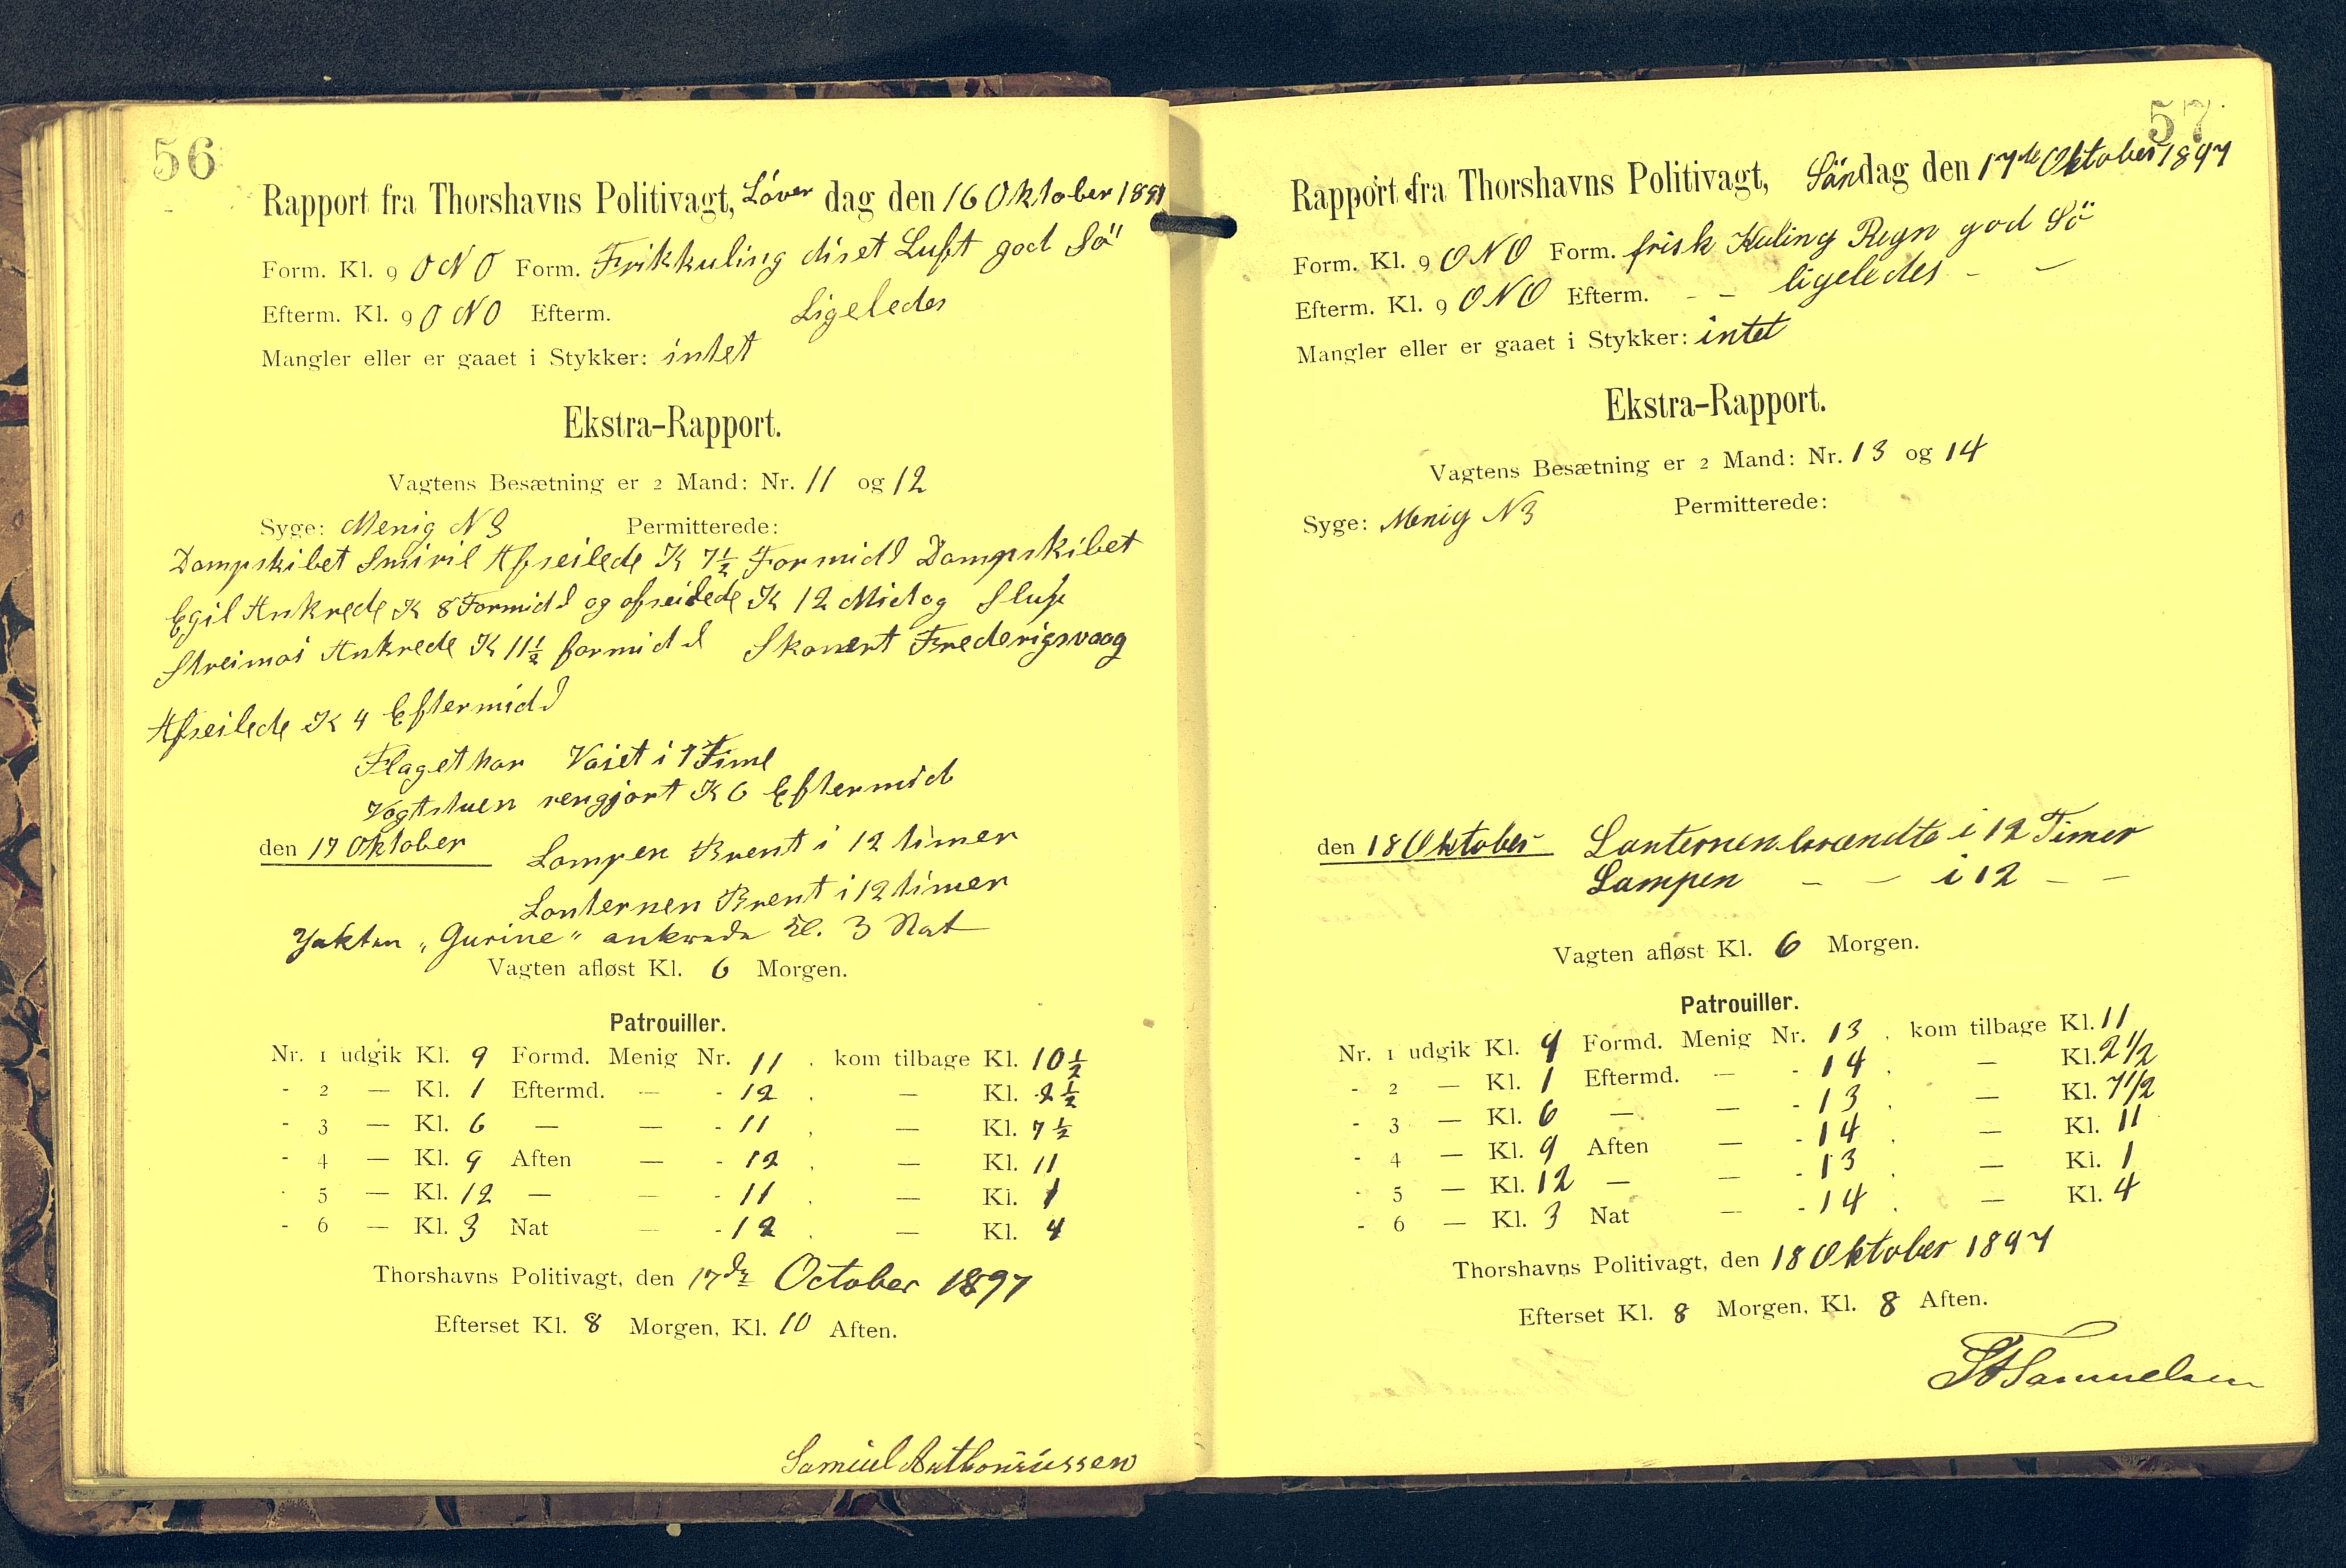 56
Rapport fra Thorshavns Politivagt, Løver dag den 16 Oktober 1897
Form. Kl. 9 ONO Form. Frikkuling diset Luft god Sö
Efterm. Kl. 9 ONO Efterm. Ligeledes
Mangler eller er gaaet i Stykker: intet
Ekstra-Rapport.
Vagtens Besætning er 2 Mand: Nr. 11 og 12
Syge: Menig N 3 Permitterede:
Dampskibet Smiril Afseilede K 7½ Formidd Dampskibet
Egil Ankrede K 8 Formidd og afseilede K 12 Midag Slup
Streimoi Ankrede K 11½ formidd Skonert Frederigsvaag
Afseilede K 4 Eftermidd
Flaget har Vaiet i 1 Time
Vagtstuen rengjort K 6 Eftermid
den 17 Oktober Lampen Brent i 12 timer
Lanternen Brent i 12 timer
Jakten „Gurine" ankrede Kl. 3 Nat
Vagten afløst Kl. 6 Morgen.
Patrouiller.
Nr. 1 udgik Kl. 9 Formd. Menig Nr. 11 . kom tilbage Kl. 10½
- 2 — Kl. 1 Eftermd. — - 12 . — Kl. 2½
- 3 — Kl. 6 — — - 11 . — Kl. 7½
- 4 — Kl. 9 Aften — - 12 . — Kl. 11
- 5 — Kl. 12 — — - 11 . — Kl. 1
- 6 — Kl. 3 Nat — - 12 . — Kl. 4
Thorshavns Politivagt, den 17de October 1897
Efterset Kl. 8 Morgen, Kl. 10 Aften.
Samuel Anthoniussen
57
Rapport fra Thorshavns Politivagt, Søndag den 17de Oktober 1897
Form. Kl. 9 ONO Form. frisk Kuling Regn god Sö
Efterm. Kl. 9 ONO Efterm. - - ligeledes - -
Mangler eller er gaaet i Stykker: intet
Ekstra-Rapport.
Vagtens Besætning er 2 Mand: Nr. 13 og 14
Syge: Menig N 3 Permitterede:
den 18 Oktober Lanternen brændte i 12 Timer
Lampen - - i 12 - -
Vagten afløst Kl. 6 Morgen.
Patrouiller.
Nr. 1 udgik Kl. 9 Formd. Menig Nr. 13 . kom tilbage Kl. 11
- 2 — Kl. 1 Eftermd. — - 14 . — Kl. 2½
- 3 — Kl. 6 — — - 13 . — Kl. 7½
- 4 — Kl. 9 Aften — - 14 . — Kl. 11
- 5 — Kl. 12 — — - 13 . — Kl. 1
- 6 — Kl. 3 Nat — - 14 . — Kl. 4
Thorshavns Politivagt, den 18 Oktober 1897
Efterset Kl. 8 Morgen, Kl. 8 Aften.
Samuelsen